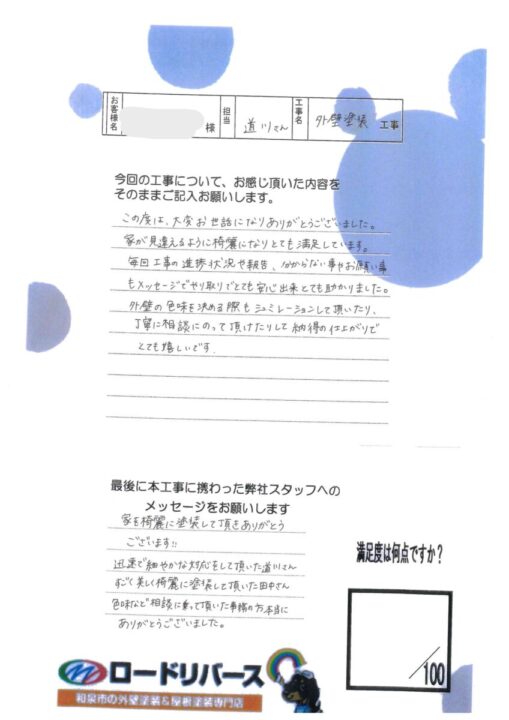 お客様名 様 担当 道川さん 工事名 外壁塗装 工事
今回の工事について、お感じ頂いた内容を
そのままご記入お願いします。
この度は、大変お世話になりありがとうございました。
家が見違えるように綺麗になりとても満足しています。
毎回工事の進捗状況や報告、分からない事やお願い事
もメッセージでやり取りでとても安心出来とても助かりました。
外壁の色味を決める際もシュミレーションして頂いたり、
丁寧に相談にのって頂けたりして納得の仕上がりで
とても嬉しいです.
最後に本工事に携わった弊社スタッフへの
メッセージをお願いします
家を綺麗に塗装して頂きありがとう
ございます!!
迅速で細やかな対応をして頂いた道川さん
すごく美しく綺麗に塗装して頂いた田中さん
色味など相談に乗って頂いた事務の方本当に
ありがとうございました。
満足度は何点ですか?
/100
ロードリバース
和泉市の外壁塗装&屋根塗装専門店